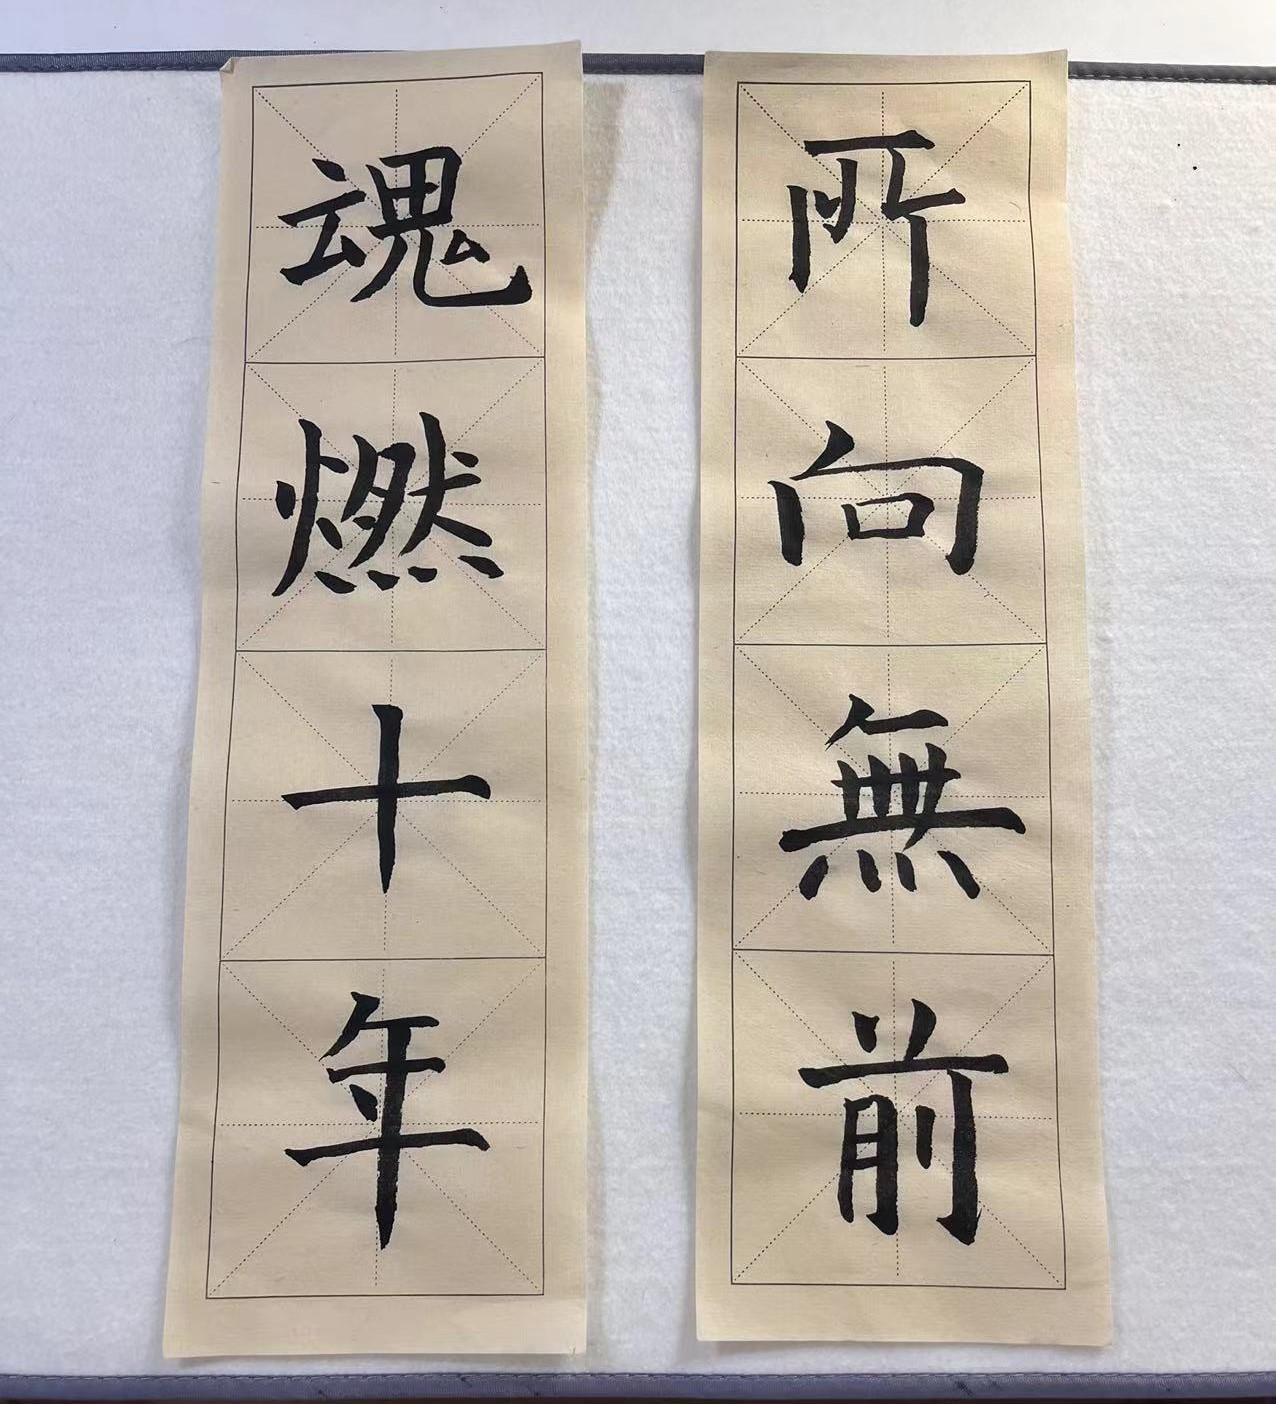 所向無前
魂燃十年